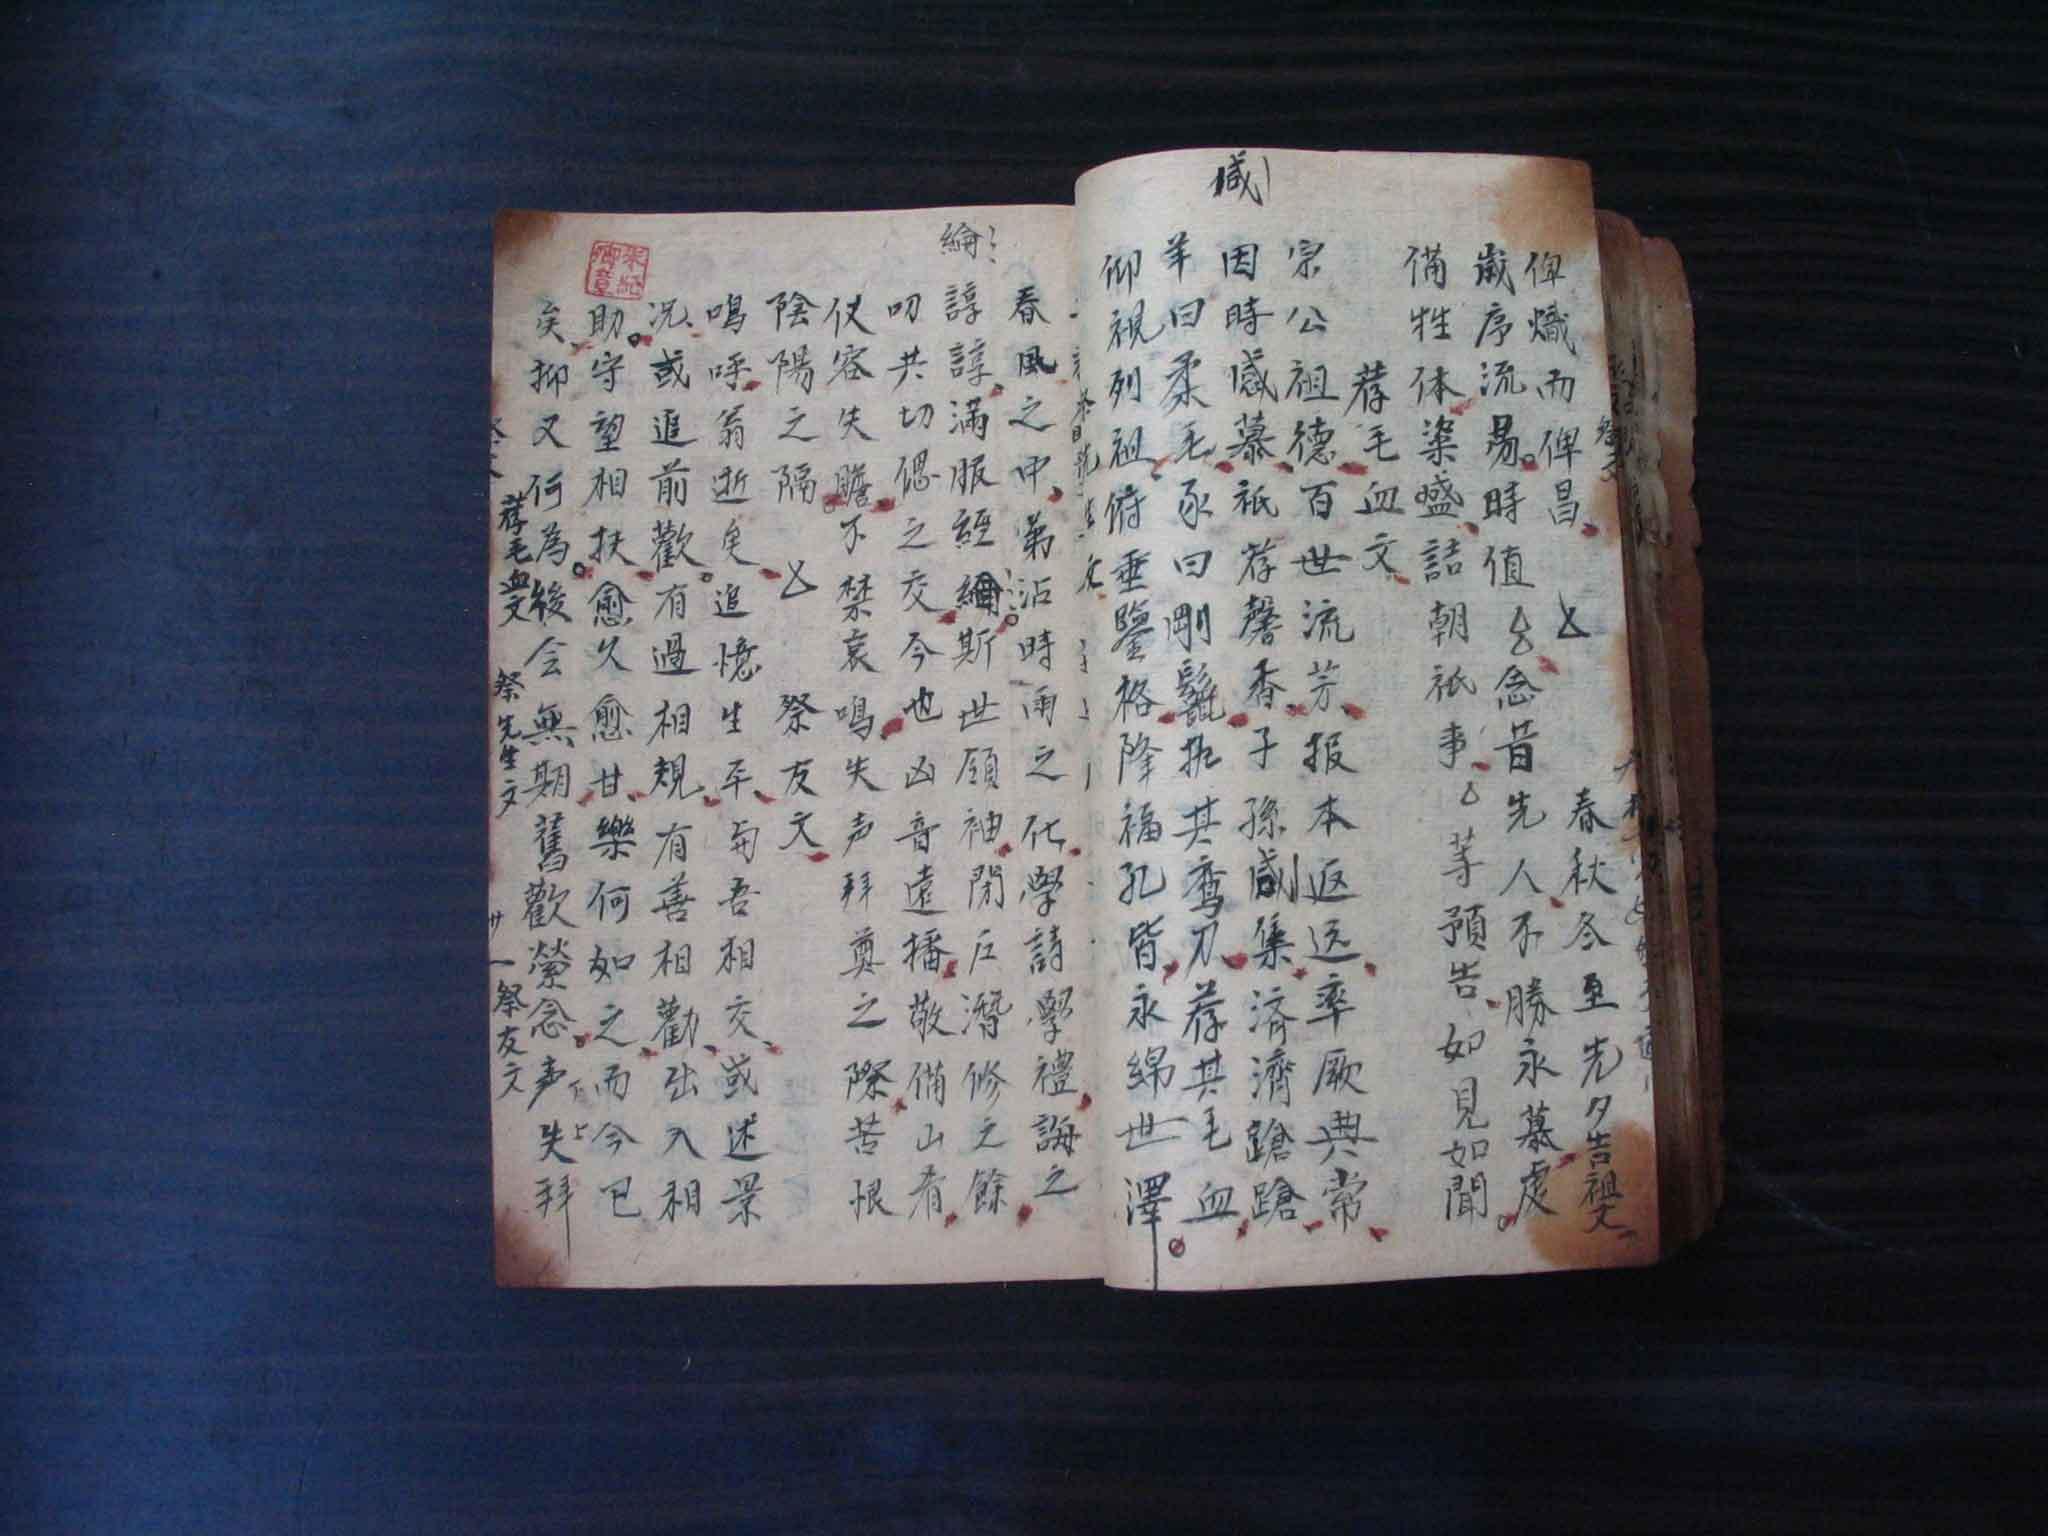 俾熾而俾昌
春秋冬至先夕告祖文
歲序流易時值厶厶念昔先人不勝永慕處
備牲体粢盛詰朝祇事厶等預告如見如聞
荐毛血文
宗公祖德百世流芳报本返远率厥典常
因時感慕祇荐馨香子孫咸集济濟蹌蹌
咸
羊曰柔毛豕曰剛鬣执其鸾刀荐其毛血
仰視列祖俯垂鑒格降福孔皆永綿世澤
春風之中弟沾時雨之化學詩學禮誨之
諄諄滿服經綸斯世領袖閉户潛修之餘
綸
叨共切偲之交今也凶音遠播敬備山肴
仗容失瞻不禁哀鳴失声拜奠之際苦恨
陰陽之隔
祭友文
鳴呼翁逝矣追憶生平与吾相交或述景
况或追前歡有過相規有善相勸出入相
助守望相扶愈久愈甘樂何如之而今已
矣抑又何為後会無期舊歡縈念声失拜
荐毛血文
祭先生文
廿一祭友文